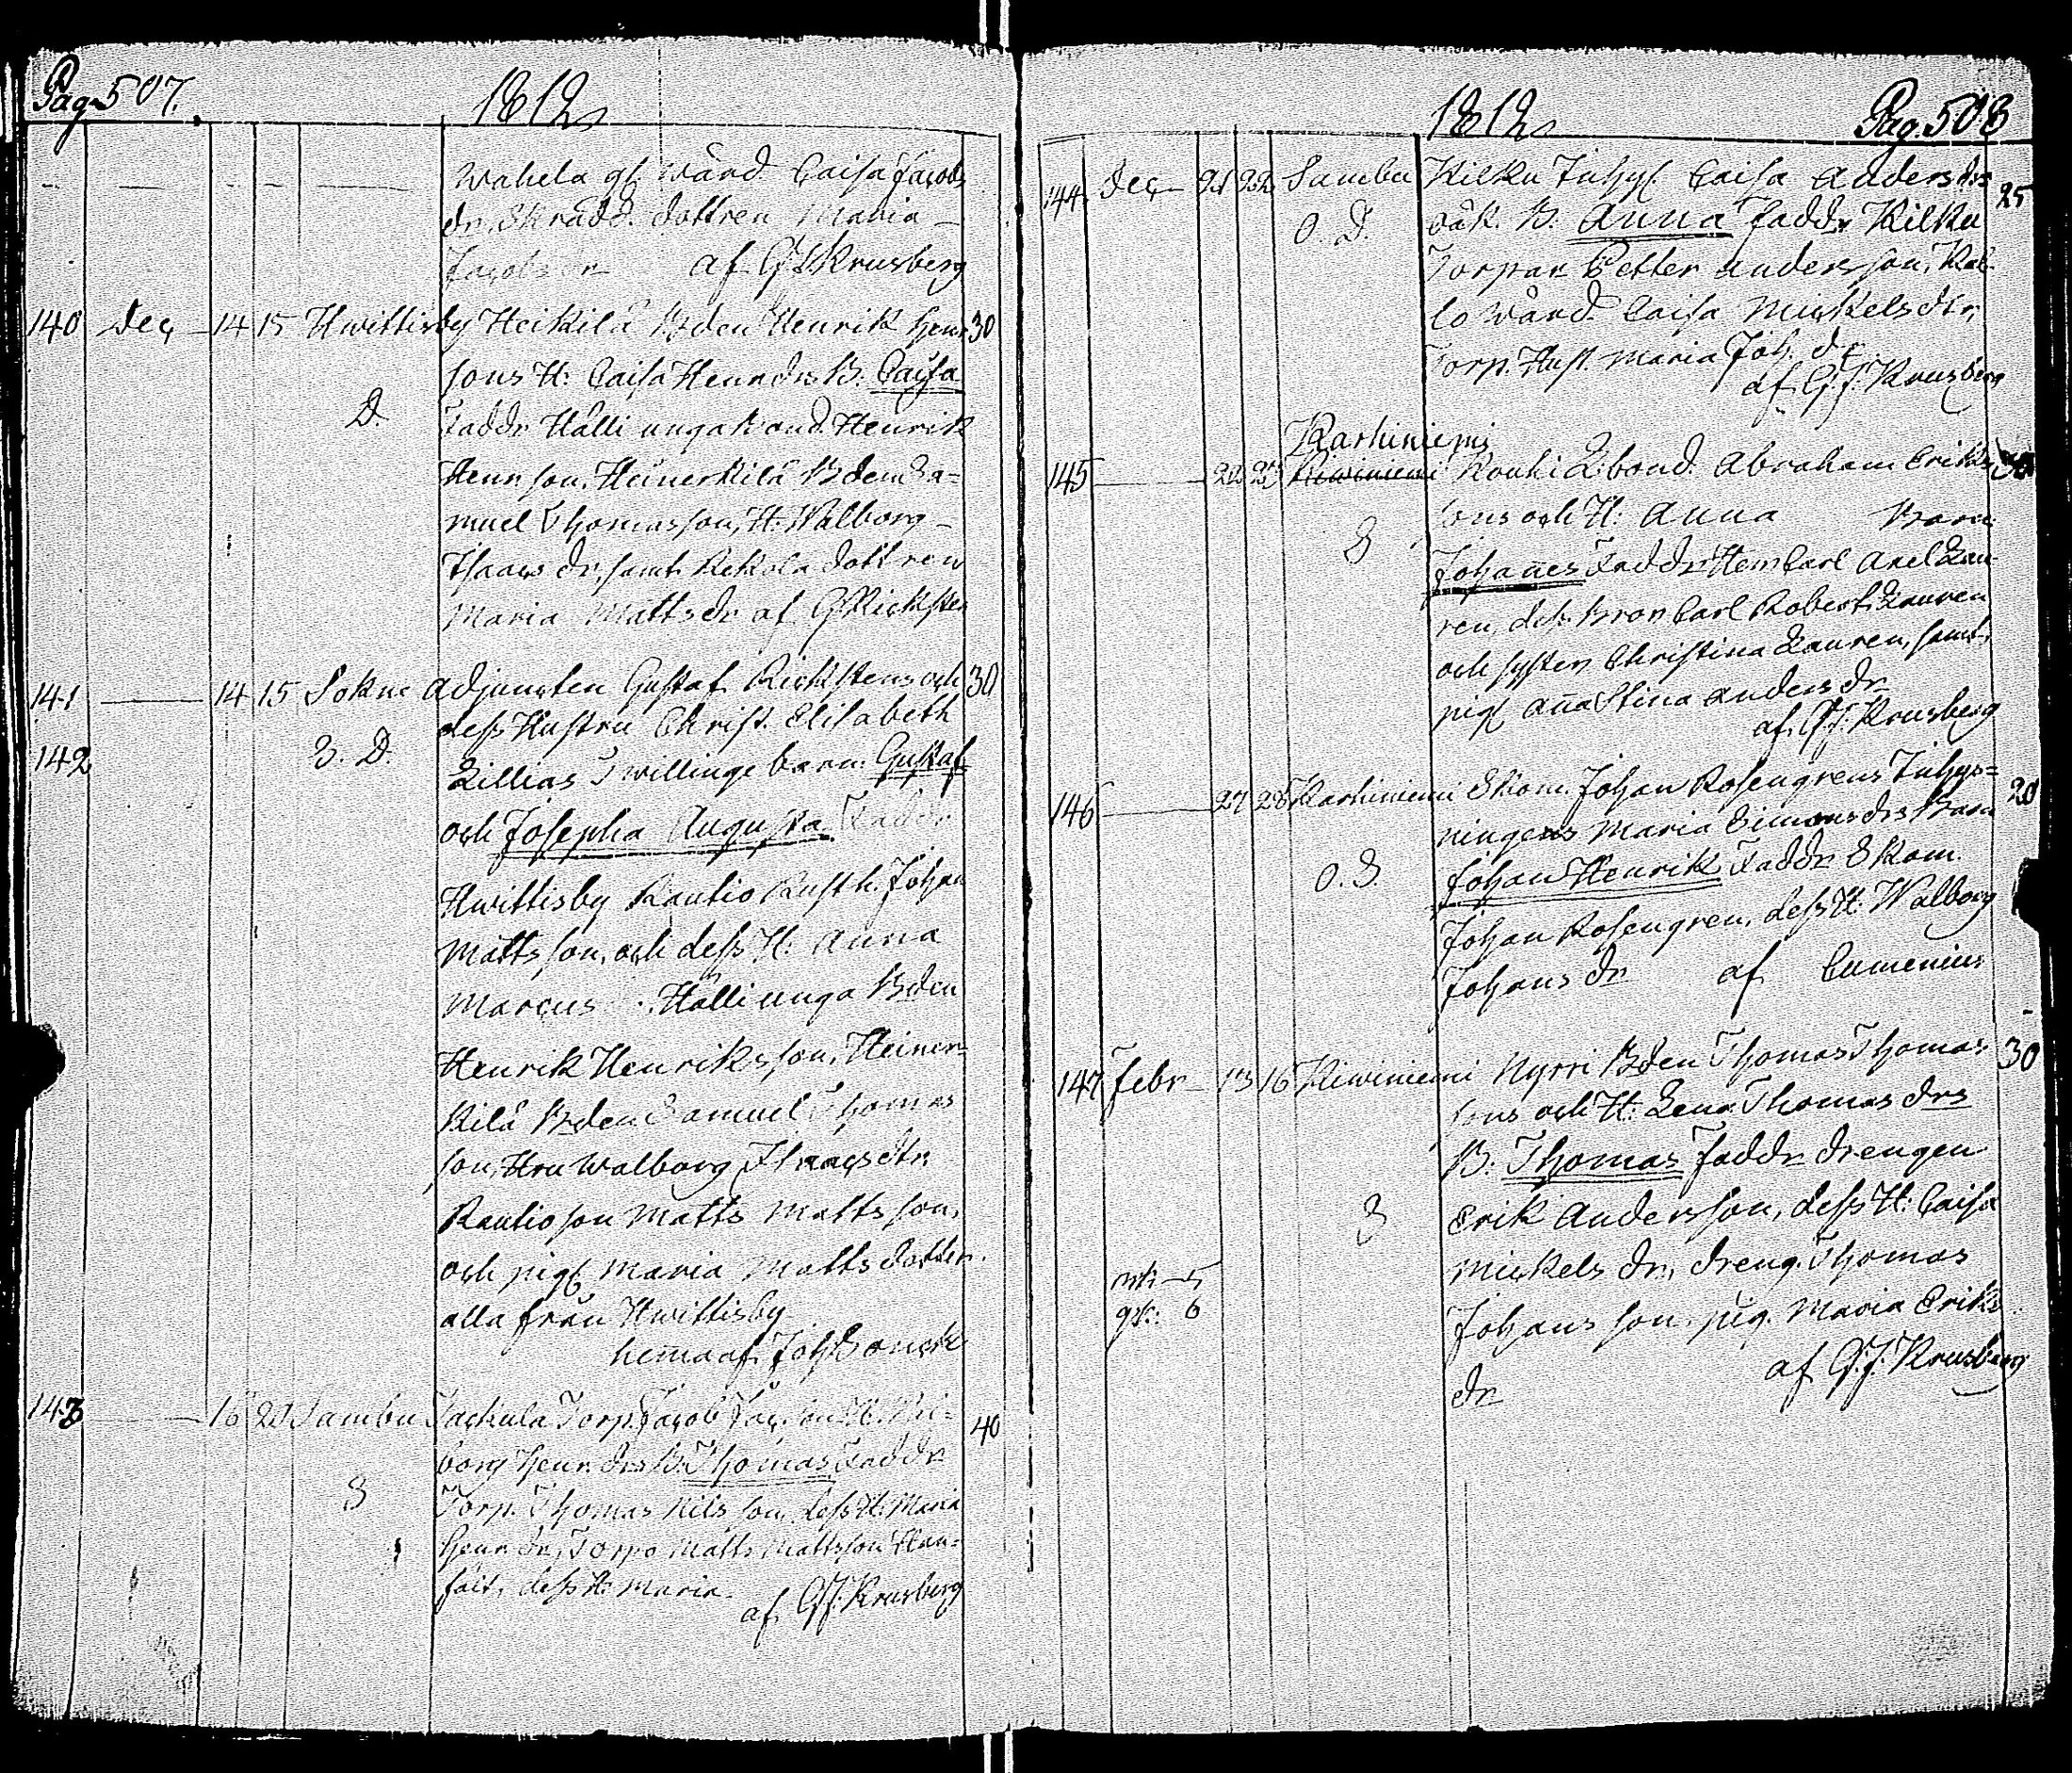 Pag. 507.
1812
Wahela gl. Wärd. Caisa Jacobs
dr, Skrädd. dottren Maria
Jacobs dr af G J Krusberg
140 Dec 14 15 Hwittisby Heikilä Bden Henrik Henr 30
sons H: Caisa Henr drs B: Caisa
D. Faddr Hälli unga Bond. Henrik
Henr son, Heinerkilä Bden Sa=
muel Thomasson, H: Walborg
Isaacs dr, samt Rekola dottren
Maria Matts dr af G Ricksten
141 14 15 Sokne Adjuncten Gustaf Rickstens och 30
dess Hustru Christ. Elisabeth
142 S. D. Lillias Twillinge barn Gustaf
och Josepha Augusta Faddr
Hwittisby Rautio Rusth. Johan
Mattsson, och dess H: Anna
Marcus Hälli unga Bden
Henrik Henriksson, Heiner
kilä Bden Samuel Thomas
son, Hru Walborg Isaacs dtr,
Rautio son Matts Mattsson,
och pig. Maria Matts dotter
alla från Hwittisby
hema af Joh
143 16 20 Sambu Jackula Torp. Jacob Jac. son H. Wal= 40
borg Henr. drs B: Thomas Faddr
S Torp. Thomas Nils son, dess H: Maria
Henr dr, Torpa Matts Mattsson Han=
fält, dess H: Maria
af G J. Krusberg
1812 Pag. 508
144 Dec 21 22 Sambu Kilku Inhys. Caisa Anders drs 25
O. D. oäk. B. Anna Faddr Kilku
Torpar. Petter Andersson, Kal
lo Wärd. Caisa Mickels dtr,
Torp. Hust. Maria Joh. dr
af G J. Krusberg
Karhiniemi
145 22 25 Kiwiniemi Rouhi L.bond. Abraham Eriks 30
sons och H: Anna Barn
S Johañes Faddr Hem Carl Axel Lau
ren, dess Bror Carl Robert Lauren
och syster Christina Lauren, samt
pig. Aña Stina Anders dr
af G J. Krusberg
146 27 28 Karhiniemi Skom. Johan Rosengrens Inhys= 20
ningens Maria Simons drs Barn
O. S. Johan Henrik Faddr Skom.
Johan Rosengren, dess H: Walborg
Johans dr af Cumenius
147 Febr 13 16 Kiwiniemi Nyrri Bden Thomas Thomas 30
sons och H: Lena Thomas drs
B: Thomas Faddr Drengen
S Erik Andersson, dess H: Caisa
Mickels dr, Dreng. Thomas
mk: 5
gk: 6
Johans son, pig. Maria Eriks
af G. J. Krusberg
dr